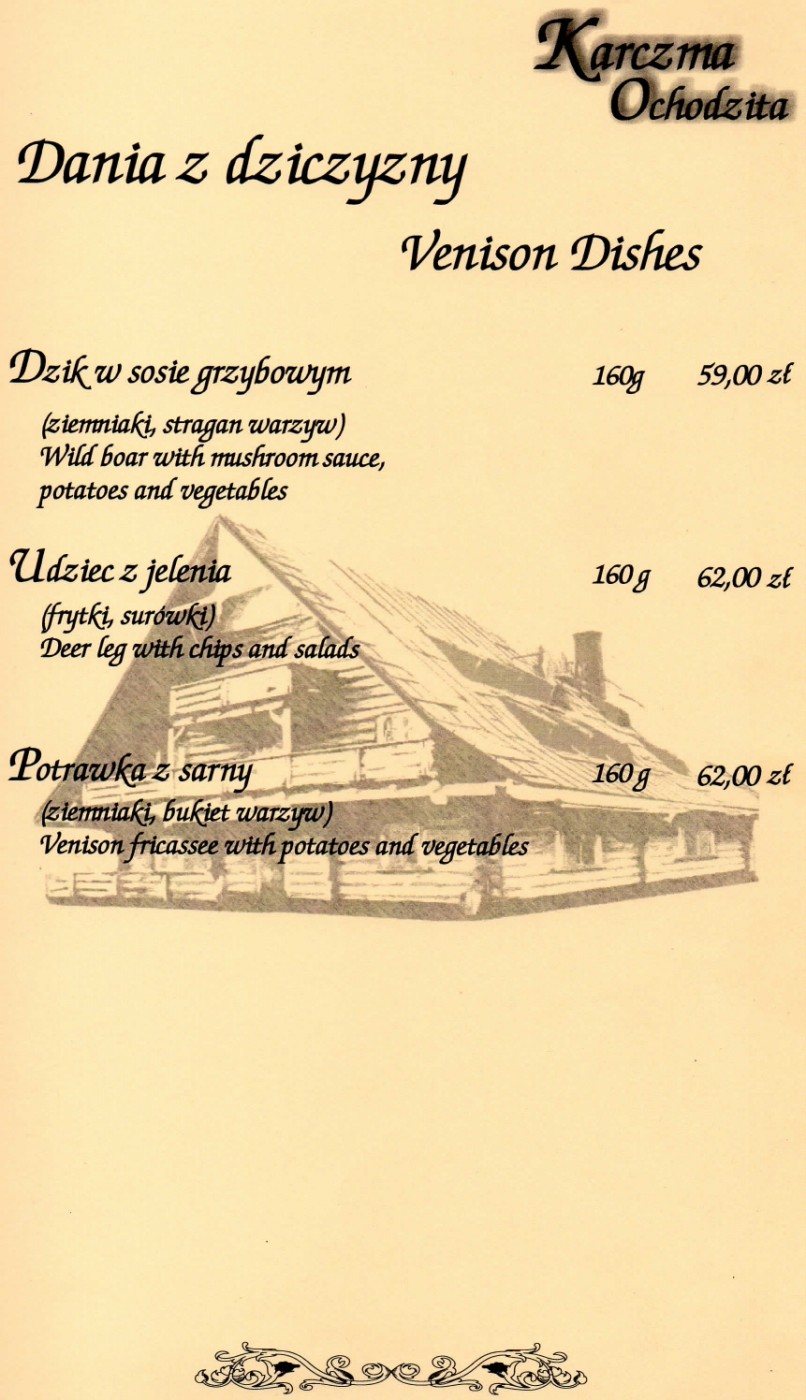 Karczma
Ochodzita
Dania z dziczyzny
Venison Dishes
Dzik w sosie grzybowym 160g 59,00 zł
(ziemniaki, stragan warzyw)
Wild boar with mushroom sauce,
potatoes and vegetables
Udziec z jelenia 160g 62,00 zł
(frytki, surówki)
Deer leg with chips and salads
Potrawka z sarny 160g 62,00 zł
(ziemniaki, bukiet warzyw)
Venison fricassee with potatoes and vegetables